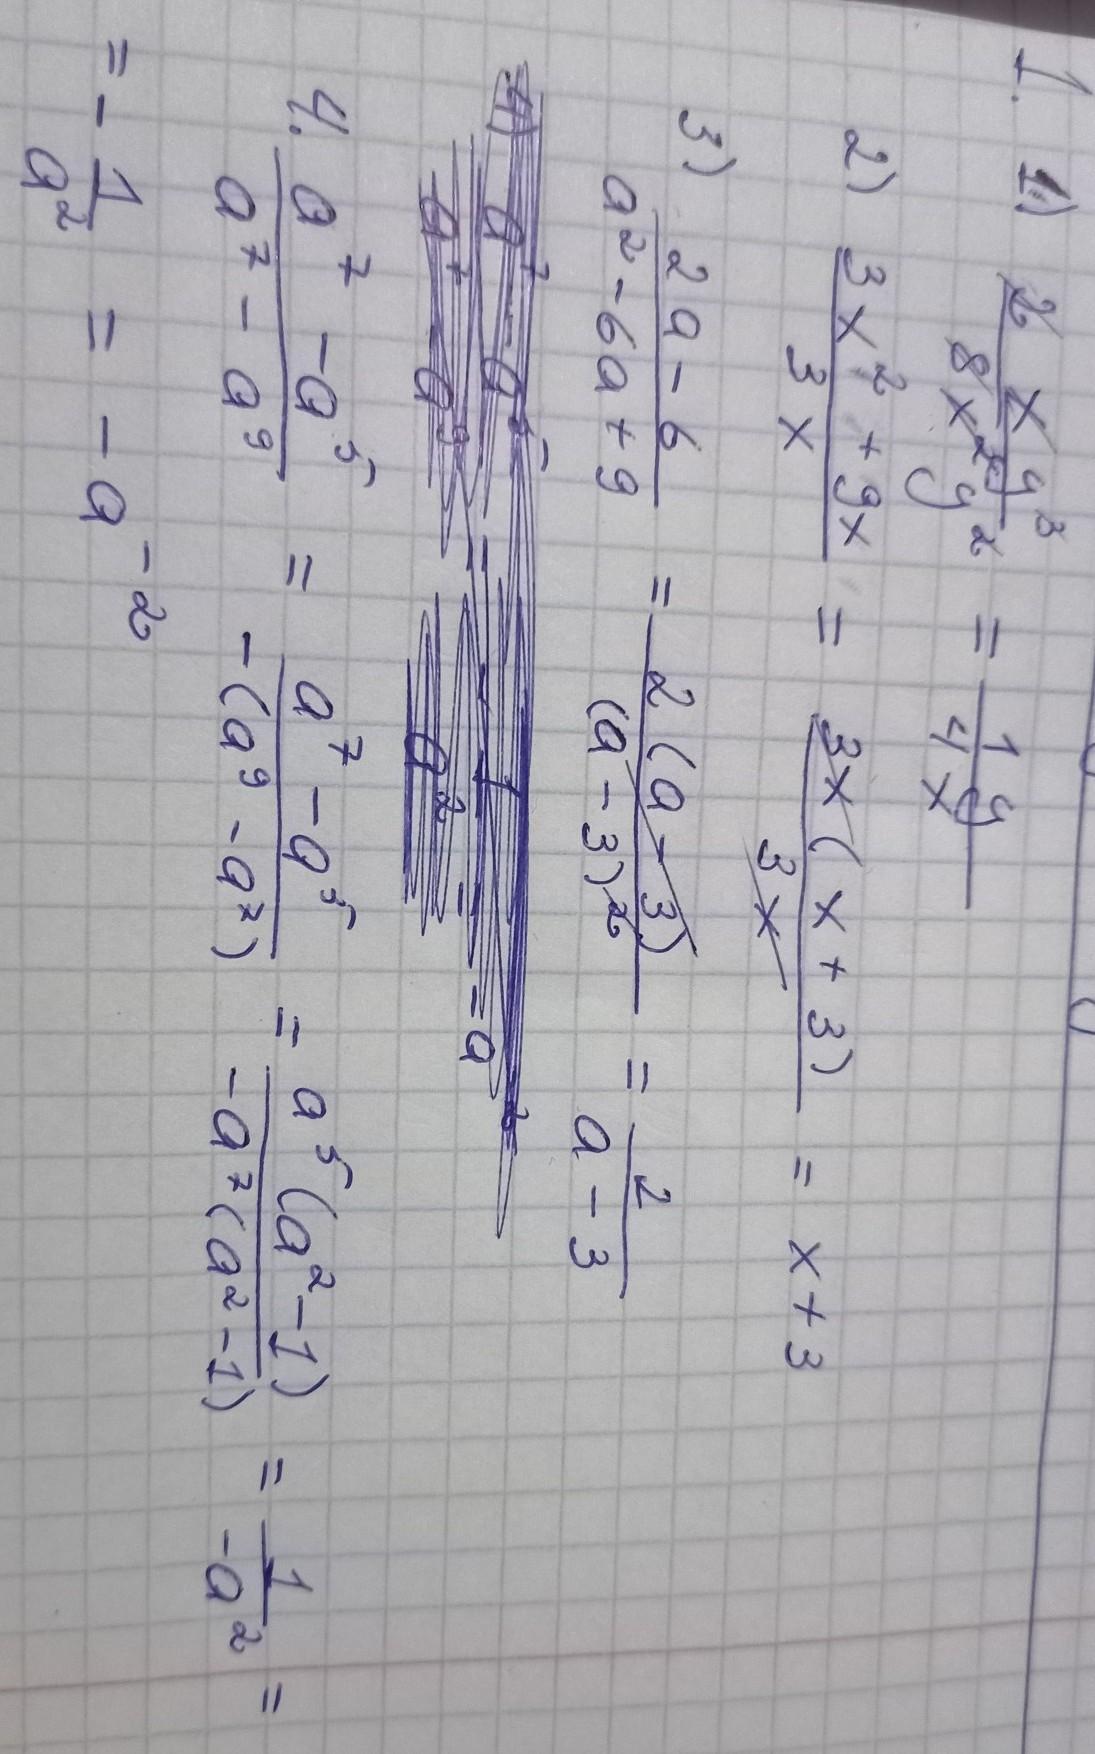 1. 1) 2xy³/8x²y² = 1y/4x
y
2) 3x² + 9x/3x = 3x(x + 3)/3x = x + 3
3) 2a - 6/a² - 6a + 9 = 2(a - 3)/(a - 3)² = 2/a - 3
4. a⁷ - a⁵/a⁷ - a⁹ = a⁷ - a⁵/-(a⁹ - a⁷) = a⁵(a² - 1)/-a⁷(a² - 1) = 1/-a² =
= - 1/a² = - a⁻²